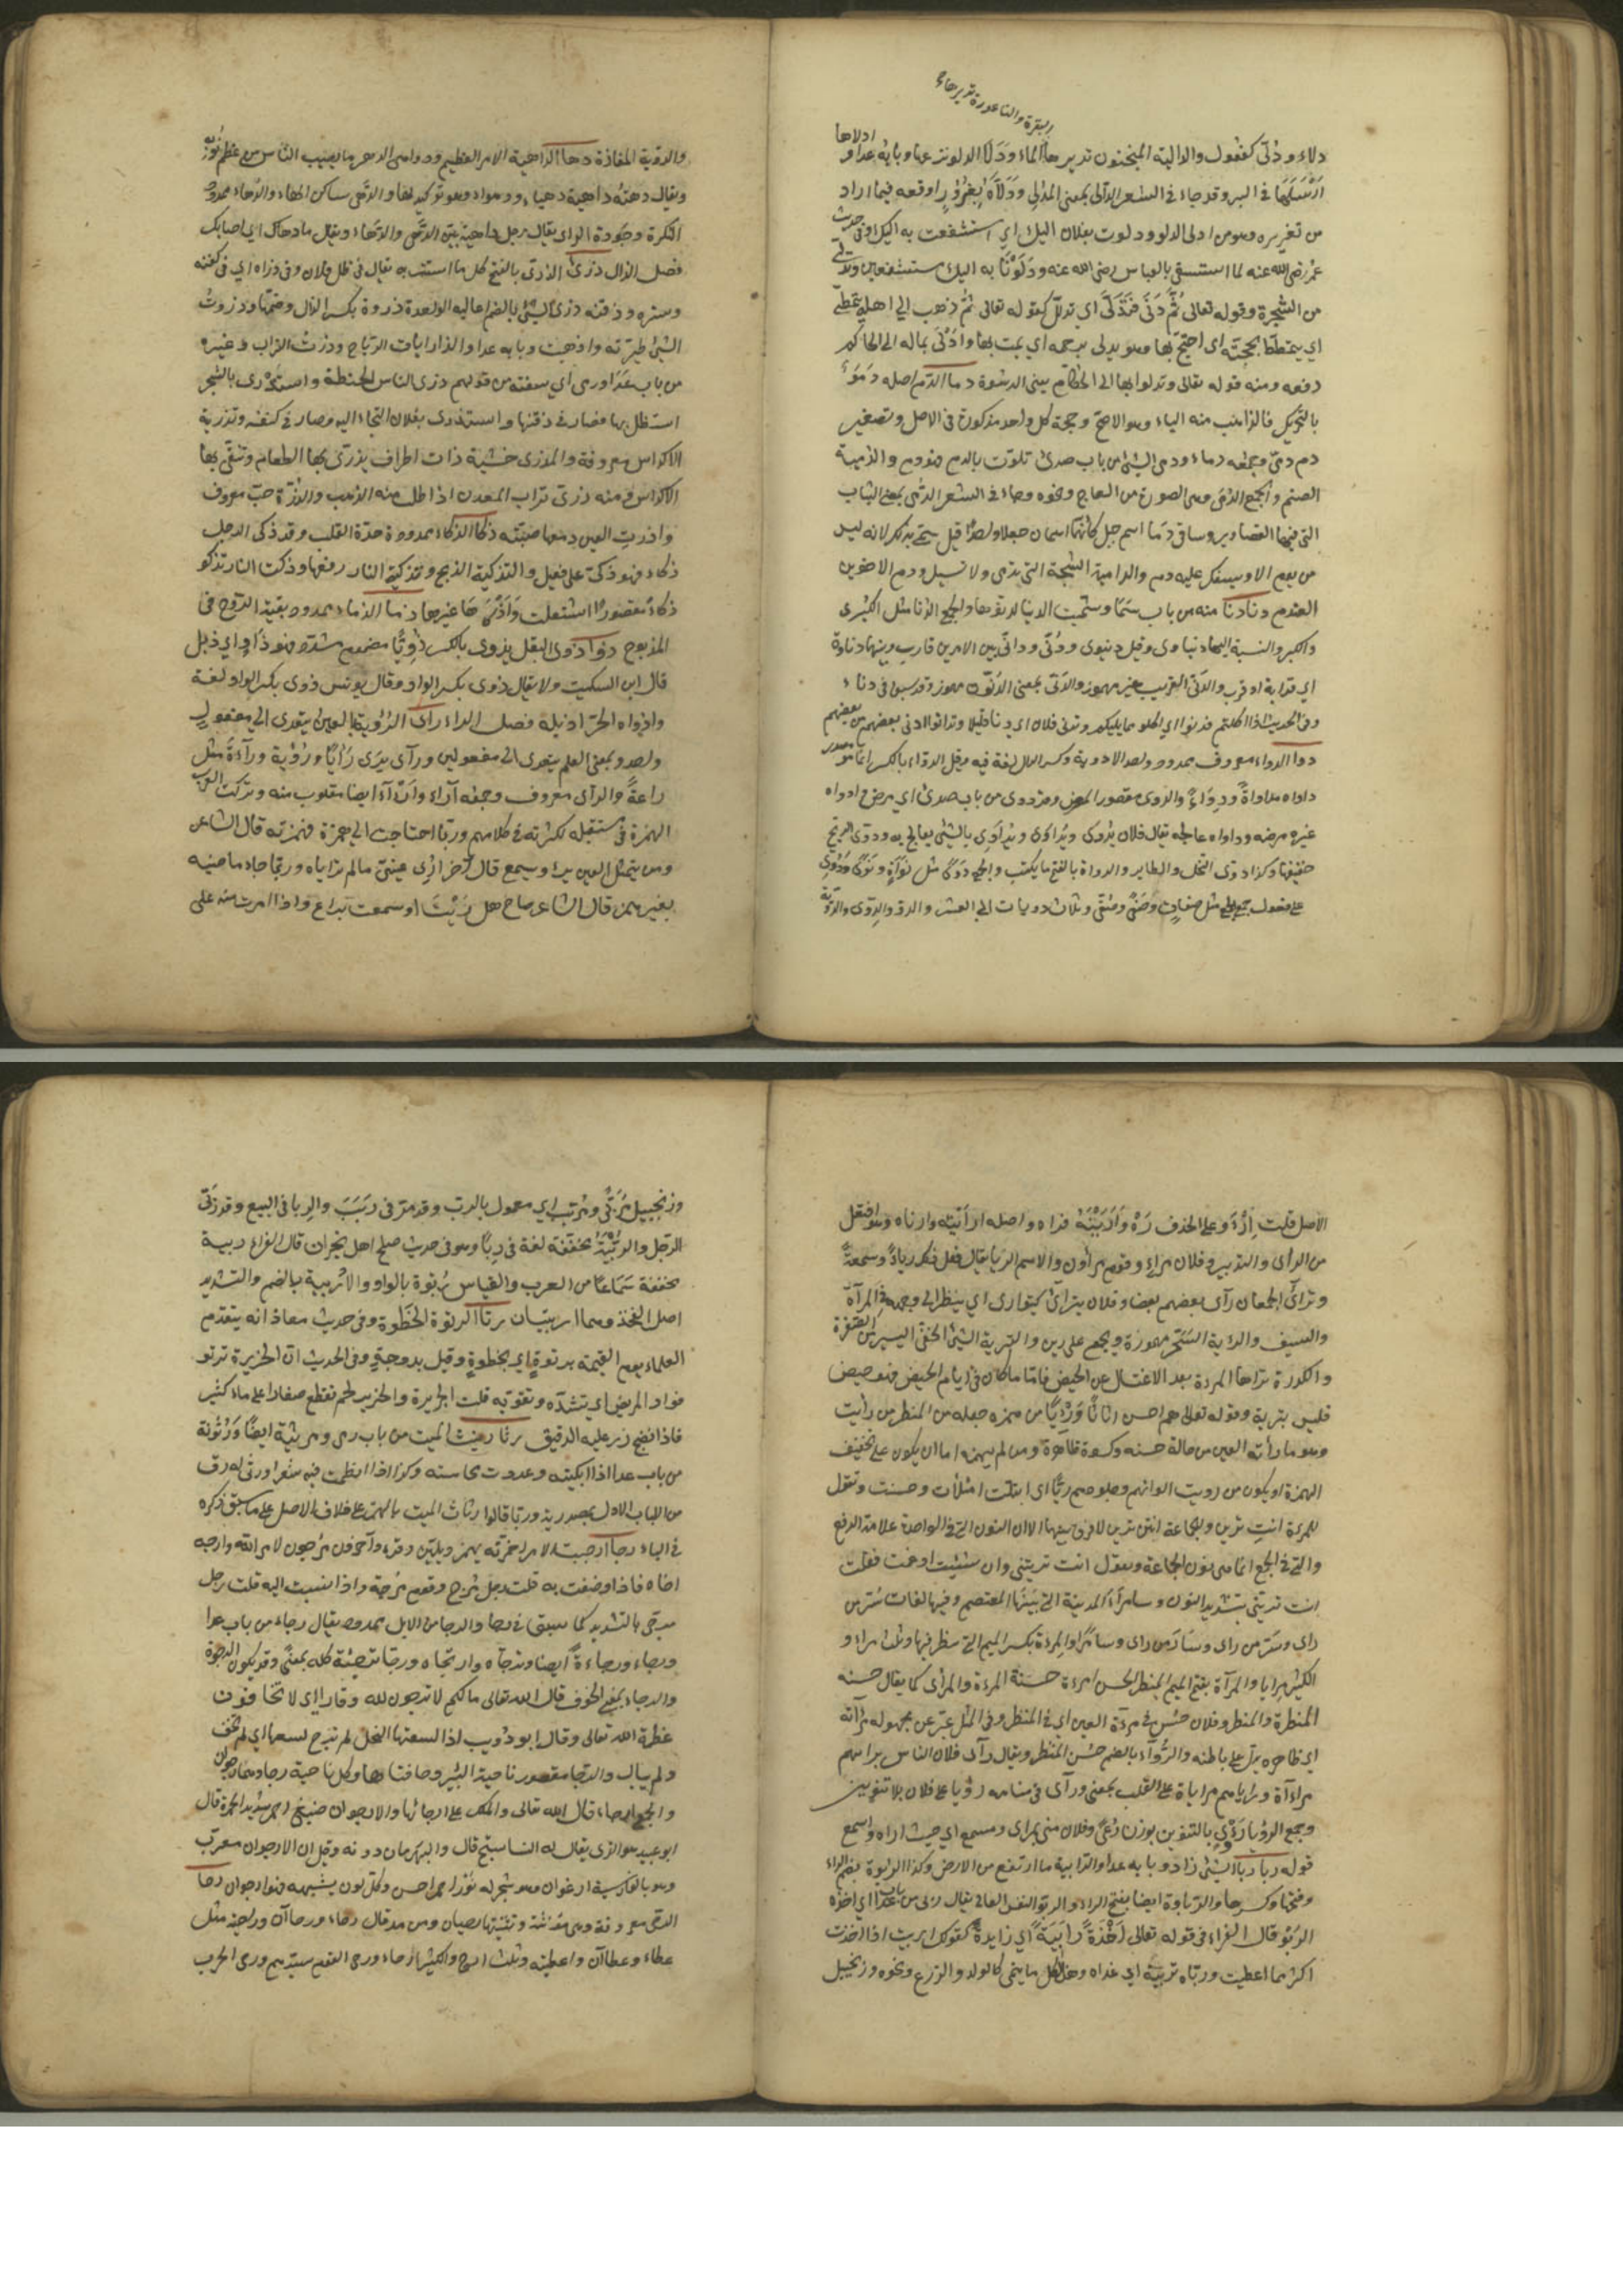 البقرة والناعورة تديرها
دلاء ودُلىّ كفعول والدالية المنجنون تديرها الماء ودَلَا الدلو نزعها وبابه عدا وادلاها
اَرْسَلَهَا في البير وقد جاء في الشعر الدالى بمعنى المدلى ودَلَّاهُ بِغُرُوْرٍ اوقعه فيما اراد
من تغريره وهو من ادلى الدلو ودلوت بفلان اليك اي استشفعت به اليك وفي حديث
عمر رضي الله عنه لما استسقى بالعباس رضي الله عنه ودَلَوْنَا به اليك مستشفعين وتدلى
من الشجرة وقوله تعالى ثُمَّ دَنَى فَتَدَلَّى اي تدلل كقوله تعالى ثم ذهب الى اهله يتمطى
اي يتمطط بحجته اى احتج بها وهو يدلى برحمه اي يمت بها وادْلَى بماله الى الحاكم
دفعه ومنه قوله تعالى وتدلوا بها الى الحكام يعنى الرشوة دما الدم اصله دَمَوٌ
بالتحريك فالذاهب منه الياء وهو الاصح وحجة كل واحد مذكورة في الاصل وتصغير
دم دمىّ وجمعه دماء ودمى الشئ من باب صدى تلوث بالدم فهو دم والدمية
الصنم والجمع الدمى وهى الصورة من العاج ونحوه وجاء في الشعر الدمى بمعنى الثياب
التى فيها التصاوير وساتى دَمَا اسم جبل كأنهما اسمان جعلا واحدًا قيل سمى بذلك لانه ليس
من يوم الا ويسفك عليه دم والدامية الشجة التى تدمى ولا تسيل ودم الاخوين
العندم دنا دنا منه من باب سَمَا وسميت الدنيا لدنوها والجمع الدنا مثل الكبرى
والكبر والنسبة اليها دنياوى وقيل دنيوى ودُنيّ ودانى بين الامرين قارب وبينهما دناوة
اي قرابة او قرب والدنى القريب غير مهموز والدنى بمعنى الدون مهموز وقد سبق في دناء
وفى الحديث اذا اكلتم فدنوا اى كلوا مما يليكم وتدنى فلان اى دنا قليلا وتدانوا ادنى بعضهم من بعضهم
دوا الدواء معروف ممدود واحد الادوية وكسر الدال لغة فيه وقيل الدواء بالكسر انما هو مصدر
داواه مداواةً ودِوَاءً والدوى مقصور المرض وقد دوى من باب صدى اى مرض وادواه
غيره مرضه وداواه عالجه يقال فلان يُدْوى ويُداوى ويُدَاوَى بالشئ يعالج به ودوىّ الريح
حفيفها وكذا دوى النحل والطاير والدواة بالفتح ما يكتب والجمع دَوًى مثل نَوَاةٍ ونَوًى ودُوِىّ
على فعول جمع الجمع مثل صفاة وصفى وصُفِىّ وثلاث دويات الى العشر والدو والدوى والدوية
والدوّية المفازة دها الداهية الامر العظيم ودواهى الدهر ما يصيب الناس من عظم نوبه
ويقال دهته داهية دهياء ودهواء وهو توكيد لها والدهى ساكن الهاء والدهاء ممدود
النكرة وجودة الراى يقال رجل داهية بين الدهى والدهاء ويقال ما دهاك اى اصابك
فصل الذال ذرى الذرى بالفتح كل ما استتر به يقال في ظل فلان وفى ذراه اى في كنفه
وستره ودفئه ذرى الشئ بالضم اعاليه الواحدة ذروة بكسر الذال وضمها وذروت
الشئ طيرته واذهبت وبابه عدا والذاريات الرياح وذرت التراب وغيره
من باب عَدَا ورمى اى سفته من قولهم ذرى الناس الحنطة واستَذْرَى بالشجر
استظل بها وصار في دفئها واستذرى بفلان التجاء اليه وصار في كنفه وتذرية
الاكداس معروفة والمذرى خشبة ذات اطراف يذرّى بها الطعام وتنقى بها
الاكداس ومنه ذرى تراب المعدن اذا طلب منه الذهب والذرة حب معروف
واذرت العين دمعها صبته ذكا الذكاء ممدود حدة القلب وقد ذكى الرجل
ذكاء فهو ذكىّ على فعيل والتذكية الذبح وتذكية النار رفعها وذكت النار تذكو
ذكاً مقصورًا اشتعلت وَاَذْكَاهَا غيرها ذما الذماء ممدود بقية الروح في
المذبوح ذوا ذوى البقل يذوى بالكسر ذُوِيًّا مضموم مشدد فهو ذاوٍ اى ذبل
قال ابن السكيت ولا يقال ذوى بكسر الواو وقال يونس ذوى بكسر الواو لغة
واذواه الحر اذبله فصل الراء راى الرؤية بالعين يتعدى الى مفعول
واحد وبمعنى العلم يتعدى الى مفعولين ورآى يرَى رَأيًا ورؤية وراءةً مثل
راعةً والرأى معروف وجمعه آراء وارآء ايضا مقلوب منه وتركت العرب
الهمزة في مستقبله لكثرته في كلامهم وربما احتاجت الى همزة فهمزته قال الشاعر
ومن يتمل العيش يرأ ويسمع قال آخر ارِى عينىّ ما لم ترأياه وربما جاء ماضيه
بغير همز قال الشاعر صاح هل رَيْتَ او سمعت براع واذا امرت منه على
الاصل قلت اِرْءَ وعلى الحذف رَهْ وَاَرَيْتُهُ فراه واصله ارأيته وارتاه وهو افتعل
من الرأى والتدبير وفلان مراءٍ وقوم مراؤن والاسم الريا يقال فعل ذلك رياءً وسمعةً
وتراأى الجمعان رآى بعضهم بعضا وفلان يتراأى كيتوارى اى ينظر الى وجهه في المرآة
والسيف والرية السَحْر مهموزة ويجمع على رين والترية الشئ الخفى اليسير من الصفرة
والكدرة تراها المرءة بعد الاغتسال عن الحيض فاما ما كان في ايام الحيض فهو حيض
فليس بترية وقوله تعالى هم احسن اثاثًا وَرِءْيًا من همزه جعله من المنظر من رايت
وهو ما رأته العين من حالة حسنه وكسوة ظاهرة ومن لم يهمزه اما ان يكون على تخفيف
الهمزة او يكون من رويت الوانهم وجلودهم ريًّا اى ابتلت امتلأت وحسنت وتقول
للمرءة انتِ ترين وللجماعة انتن ترين لا فرق بينهما الا ان النون التى في الواحدة علامة الرفع
والتى في الجمع انما هى نون الجماعة وتقول انت ترينى وان شئت ادغمت فقلت
انت ترينى بتشديد النون وسامرّا المدينة التى بَنَاهَا المعتصم وفيها لغات سُرَّ من
راى وسَرّ من راى وسَاءَ من راى وسامرّا والمِرءة بكسر الميم التى ينظر فيها وثلث مراء و
الكثير مرايا والمرآة بفتح الميم المنظر الحسن امرءة حسنة المرءة والمرأى كما يقال حسنه
المنظرة والمنظر وفلان حسن في مرءآة العين اى في المنظر وفى المثل عبر عن مجهوله مرآته
اى ظاهره يدل على باطنه والرُّوَآء بالضم حسن المنظر ويقال رآى فلان الناس يرايهم
مراءآة ويراياهم مراياة على القلب بمعنى ورآى في منامه رؤيا على فلان بلا تنوين
وجمع الرؤيا رُؤًى بالتنوين بوزن رُعًى وفلان منى بمراى ومسمع اى حيث اراه واسمع
قوله ربا ربا الشئ زاد وبابه عدا والرابية ما ارتفع من الارض وكذا الربوة بضم الراء
وفتحها وكسرها والرباوة ايضا بفتح الراء والربو النفس العالى يقال ربى من باب عدا اى اخذه
الربو قال الفراء في قوله تعالى اَخْذَةً رَابِيَةً اى زايدة كقولك اربيت اذا اخذت
اكثر مما اعطيت وربّاه تربيةً اى غذاه وهذا لكل ما ينمى كالولد والزرع ونحوه وزنجبيل
وزنجبيل مُرَبًّى ومُربّب اى معمول بالرب وقد مر في رَبَبَ والربا في البيع وقد اربى
الرجل والرُّبْيَةُ مخففة لغة في ربًا وهو فى حديث صلح اهل نجران قال الفراء ربية
مخففة سَمَاعًا من العرب والقياس رُبوة بالواو والاُربية بالضم والتشديد
اصل الفخذ وهما اربيتان رتا الرتوة الخَطوة وفى حديث معاذ انه يتقدم
العلماء يوم القيمة برتوةٍ اى بخطوةٍ وقيل بدرجةٍ وفى الحديث ان الخزيرة ترتو
فؤاد المريض اى تشده وتقوّيه قلت الخزيرة والخزير لحم يقطع صغارا على ماء كثير
فاذا نضج ذر عليه الدقيق رثا رثيت الميت من باب رمى ومرثية ايضًا وَرَثَوْتَهُ
من باب عدا اذا ابكيته وعددت محاسنه وكذا اذا نظمت فيه شعرا ورثى له رق
من الباب الاول بمصدريه وربما قالوا رثأت الميت بالهمز على خلاف الاصل على ما سبق ذكره
في الباء رجا ارجيت الامر اخرته يهمز ويلين وقرئ وآخرون مرجون لامر الله وارجه
اخاه فاذا وصفت به قلت رجل مُرْجٍ وقوم مُرجية واذا نسبت اليه قلت رجل
مرجىّ بالتشديد كما سبق في رجا والرجا من الامل ممدود يقال رجاءُ من باب عدا
ورجاء ورجاءةً ايضا وترجّاه وارتجاه ورجّا ترجئة كله بمعنًى وقد يكون الرجوة
والرجاء بمعنى الخوف قال الله تعالى مالكم لا ترجون لله وقارا اى لا تخافون
عظمة الله تعالى وقال ابو ذؤيب اذا لسعتها النحل لم ترج لسعها اى لم تخف
ولم يبال والرجا مقصور ناحية البير وحافتاها وكل ناحية رجا وهما رجوان
والجمع ارجاء قال الله تعالى والملك على ارجائها والارجوان صبغ احمر شديد الحمرة قال
ابو عبيد هو الذى يقال له النشاستج قال والبهرمان دونه وقيل ان الارجوان معرّب
وهو بالفارسية ارغوان وهو شجر له نَوْر احمر احسن وكل لون يشبهه فهو ارجوان رحا
الرحى معروفة وهى مؤنثة وتثنيتها رحيان ومن مد قال رحاء ورحاآن وارحية مثل
عطاء وعطاآن واعطية وثلث ارحٍ والكثير ارحاء ورحى القوم سيّدهم ورحى الحرب